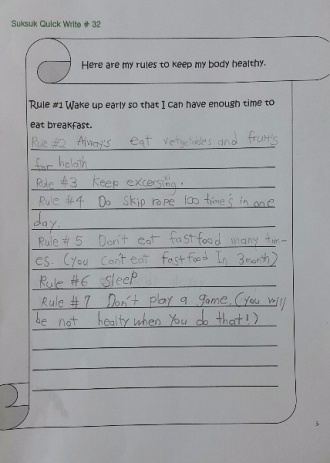 Suksuk Quick Write # 32
Here are my rules to keep my body healthy.
Rule #1 Wake up early so that I can have enough time to
eat breakfast.
Rule #2 Always eat vetgetables and fruits
for helath
Rule #3 Keep excersing.
Rule #4 Do Skip rope 100 time's in one
day.
Rule # 5 Don't eat fastfood many tim-
es. (you can't eat fastfood In 3month)
Rule #6 sleep
Rule # 7 Don't play a game. (you will
be not healty when You do that!)